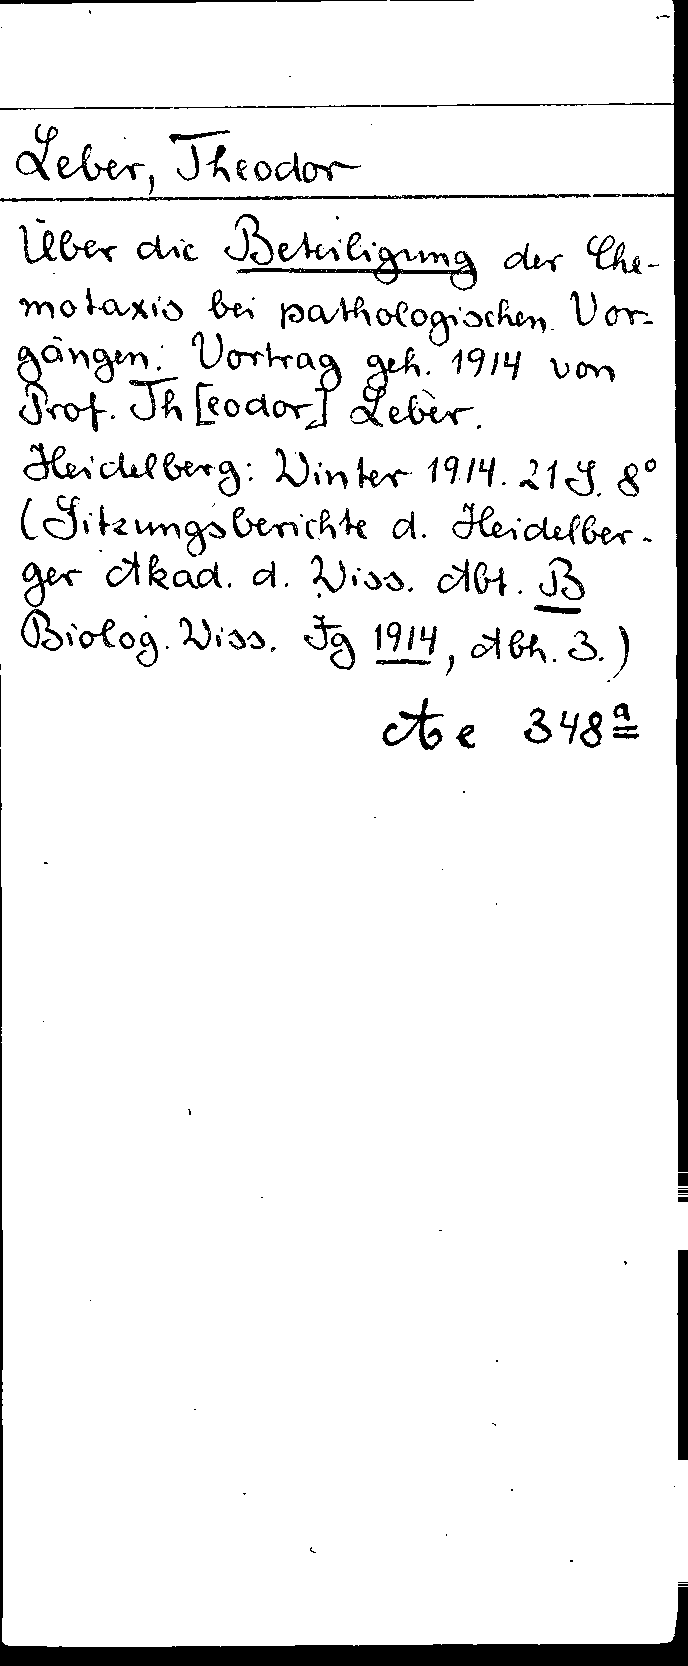 Leber, Theodor
Über die Beteiligung der Che-
motaxis bei pathologischen Vor-
gängen. Vortrag geh. 1914 von
Prof. Th[eodor] Leber.
Heidelberg: Winter 1914. 21 S. 8°
(Sitzungsberichte d. Heidelber-
ger Akad. d. Wiss. Abt. B
Biolog. Wiss. Jg 1914, Abh. 3.)
Ae 348a